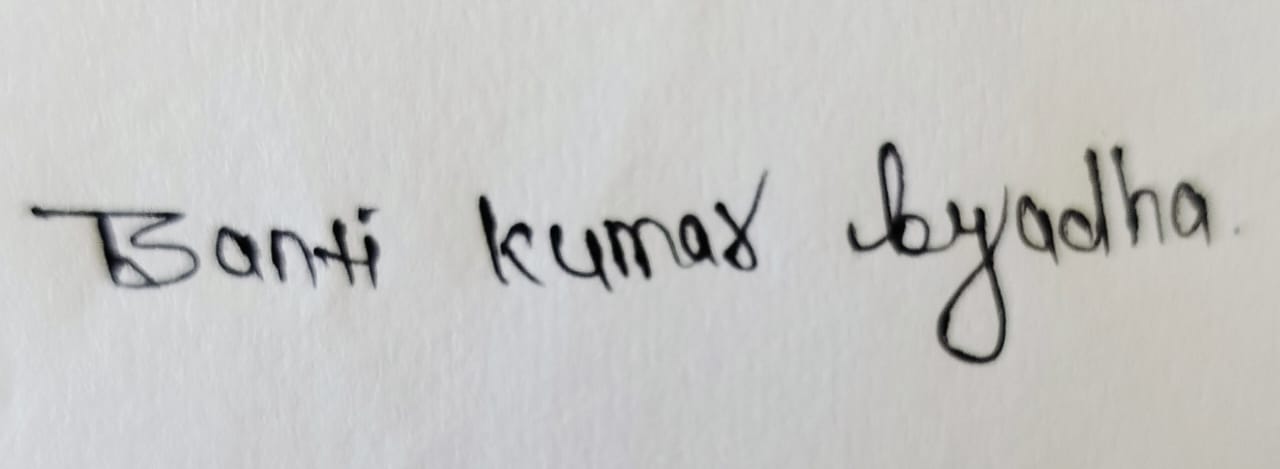 Banti kumar byadha.